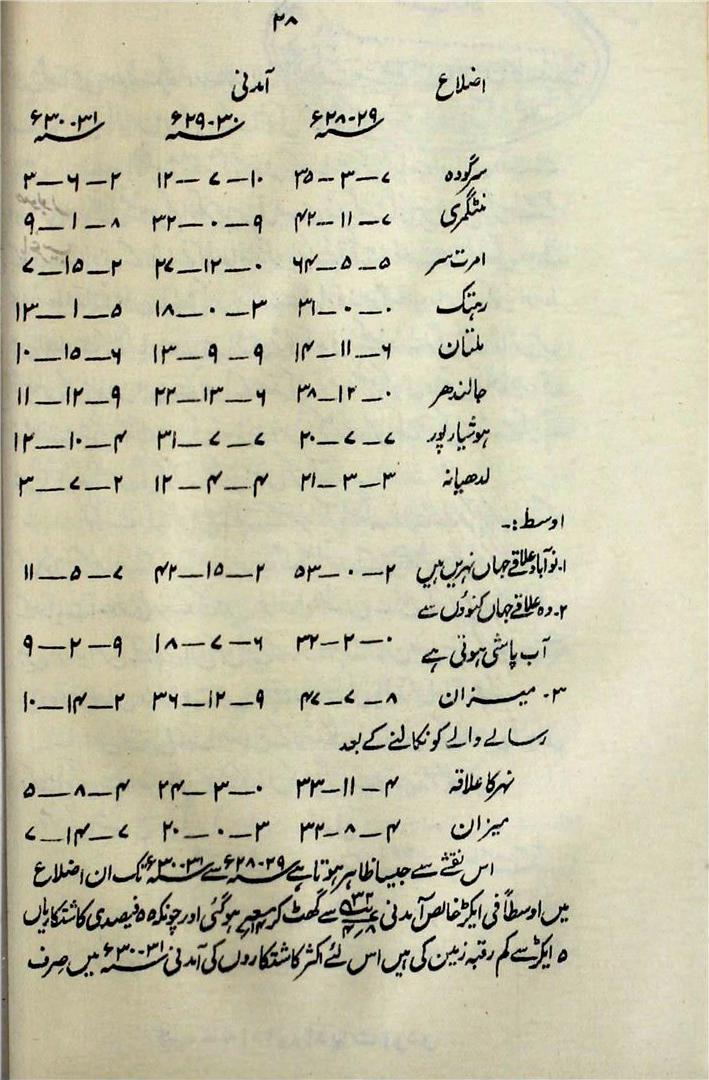 ۲۸
اضلاع آمدنی
۲۹-۲۸ء ۳۰-۲۹ء ۳۱-۳۰ء
سرگودہ ۷—۳—۳۵ ۱۰—۷—۱۲ ۲—۶—۳
منٹگمری ۷—۱۱—۴۲ ۹—۰—۳۲ ۸—۱—۹
امرت سر ۵—۵—۶۴ ۰—۱۲—۲۷ ۲—۱۵—۷
رہتک ۰—۰—۳۱ ۳—۰—۱۸ ۵—۱—۱۳
ملتان ۶—۱۱—۱۴ ۹—۹—۱۳ ۶—۱۵—۱۰
جالندھر ۰—۱۲—۳۸ ۶—۱۳—۲۲ ۹—۱۲—۱۱
ہوشیارپور ۷—۷—۲۰ ۷—۷—۳۱ ۴—۱۰—۱۲
لدھیانہ ۳—۳—۲۱ ۴—۴—۱۲ ۲—۷—۳
اوسط:۔
۱۔نوآباد علاقے جہاں نہریں ہیں ۲—۰—۵۳ ۲—۱۵—۴۲ ۷—۵—۱۱
۲۔وہ علاقے جہاں کنوؤں سے
آب پاشی ہوتی ہے ۰—۲—۳۲ ۶—۷—۱۸ ۹—۲—۹
۳۔ میزان ۸—۷—۴۷ ۹—۱۲—۳۶ ۲—۱۴—۱۰
رسالے والے کو نکالنے کے بعد
نہر کا علاقہ ۴—۱۱—۳۳ ۰—۳—۲۴ ۴—۸—۵
میزان ۴—۸—۳۲ ۳—۰—۲۰ ۷—۱۴—۷
اس نقشے سے جیسا ظاہر ہوتا ہے ۲۹-۲۸ء سے ۳۱-۳۰ء تک ان اضلاع
میں اوسطاً فی ایکڑ خالص آمدنی سے گھٹ کر ہو گئی اور چونکہ ۵۵ فیصدی کاشتکاریاں
۵ ایکڑ سے کم رقبہ زمین کی ہیں اس لئے اکثر کاشتکاروں کی آمدنی ۳۱-۳۰ء میں صرف